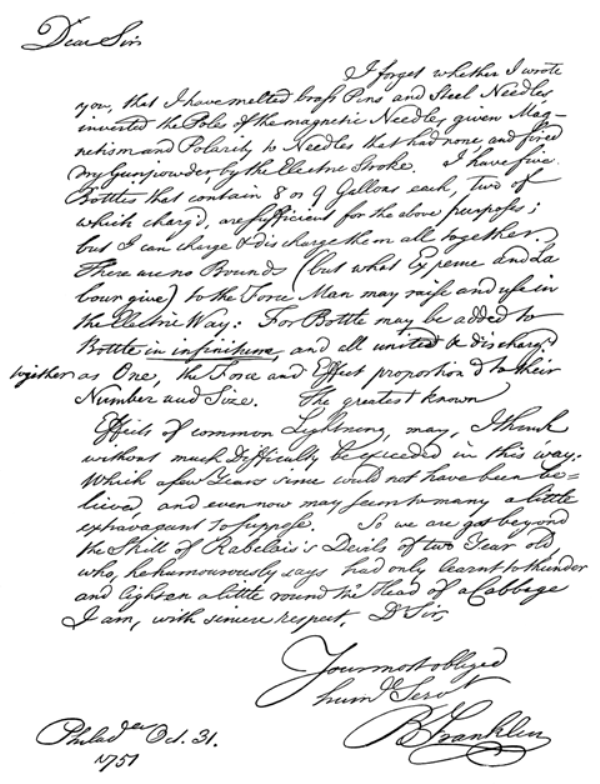 Dear Sir
I forget whether I wrote
you, that I have melted brass Pins and Steel Needles,
inverted the Poles of the magnetic Needles, given Mag-
netism and Polarity to Needles that had none and fired
dry Gunpowder, by the Electric Stroke. I have five
Bottles that contain 8 or 9 Gallons each, Two of
which charg'd, are sufficient for the above purposes;
but I can charge & discharge them all together.
There are no Bounds (but what Expence and La
bour give) to the Force Man may raise and use in
the Electric Way: For Bottle may be added to
Bottle in infinitum, and all united & discharg'd
together as One, the Force and Effect proportion'd to their
Number and Size. The greatest known
Effects of common Lightning, may, I think
without much Difficulty be exceeded in this way:
Which a few Years since could not have been be-
lieved, and even now may seem to many a little
extravagant to suppose. So we are got beyond
the Skill of Rabelais's Devils of two Year old,
who, he humourously says had only learnt to thunder
and lighten a little round the Head of a Cabbage
I am, with sincere respect, Dr Sir,
Your most obliged
humd Servt
B Franklin
Philada Oct. 31.
1751